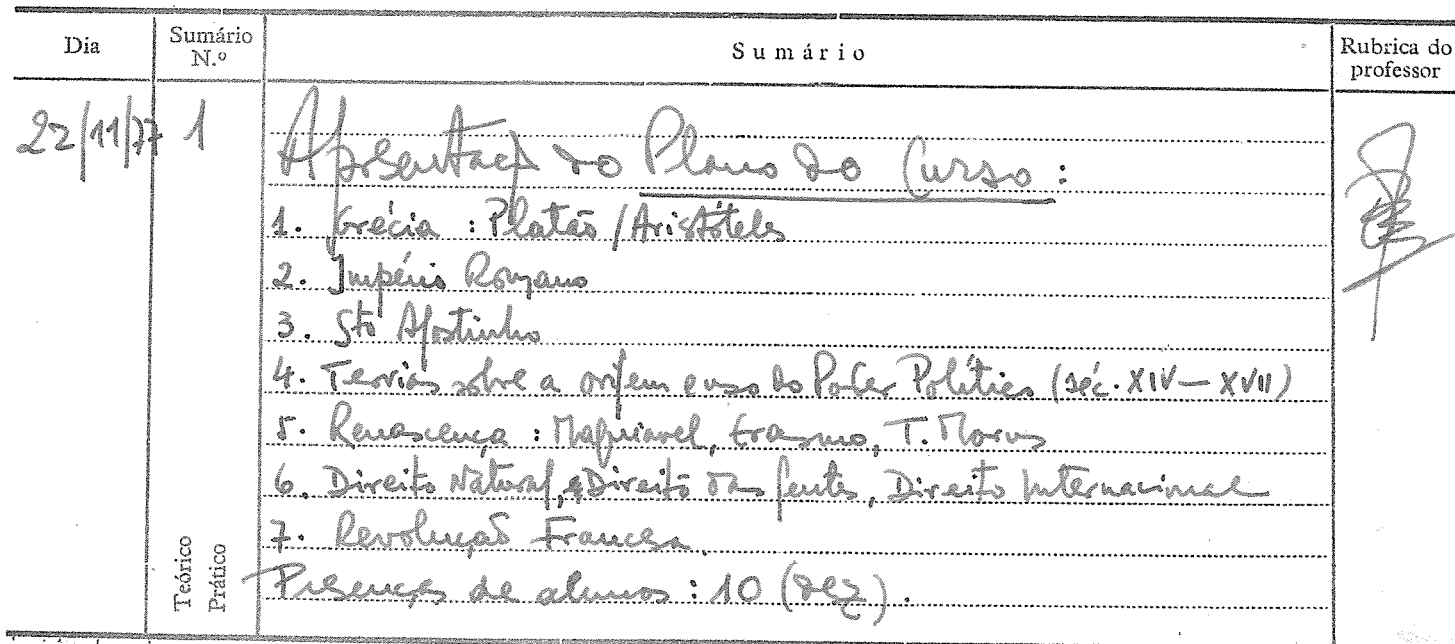 Dia
Sumário N.º
Sumário
Rubrica do professor
22/11/77 1 Apresentação do Plano do Curso:
1. Grécia: Platão / Aristóteles
2. Império Romano
3. Sto Agostinho
4. Teorias sobre a origem e uso do Poder Político (séc. XIV — XVII)
5. Renascença: Maquiavel, Erasmo, T. Morus
6. Direito Natural, Direito das gentes, Direito Internacional
7. Revolução Francesa.
Presenças de alunos: 10 (dez).
Teórico
Prático